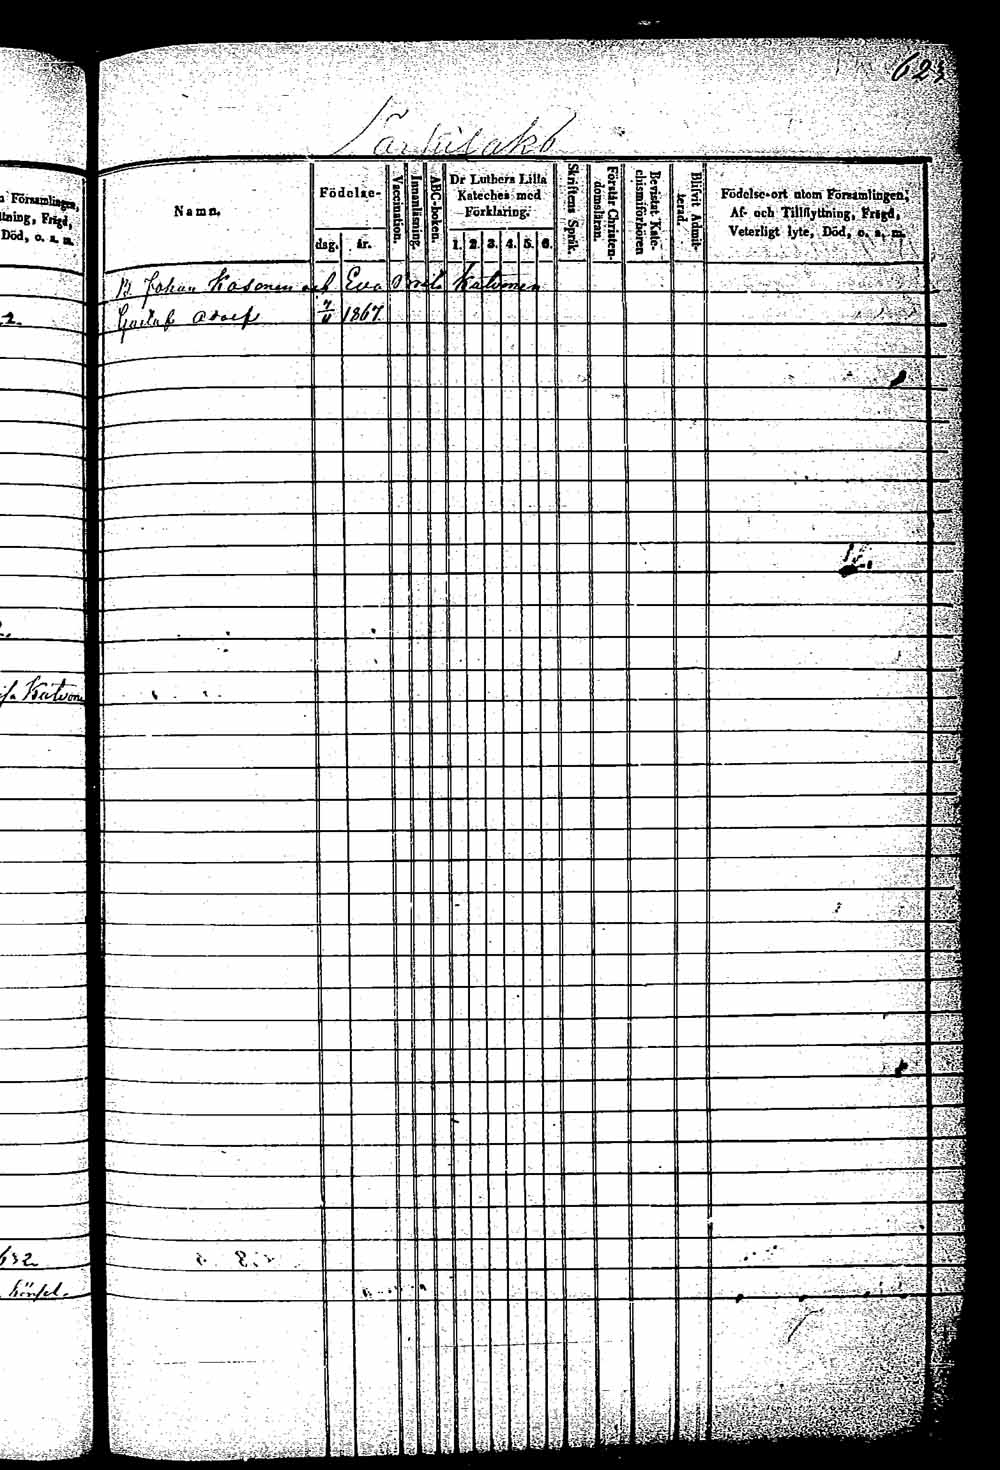 623
n Församlingen,
ttning, Frägd,
Död, o. s. m.
Namn.
Födelse-
dag. år.
Vaccination.
Innanläsning.
ABC-boken.
Dr Luthers Lilla
Kateches med
Förklaring.
1. 2. 3. 4. 5. 6.
Skriftens Språk.
Förstår Christen-
domsläran.
Bevistat Kate-
chismiförhören
Blifvit Admit-
terad.
Födelse-ort utom Församlingen,
Af- och Tillflyttning, Frägd,
Veterligt lyte, Död, o. s. m.
Johan Kasonen och Eva Brita Katvonen
2.
Gustaf Adolf 7/11 1867.
632